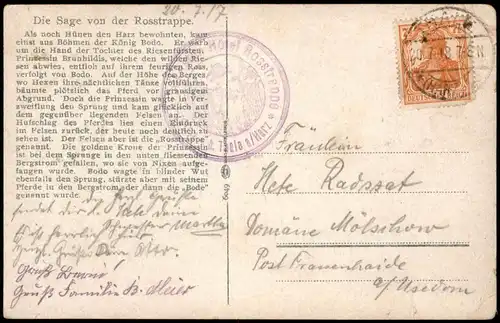 20.7.17
Die Sage von der Rosstrappe.
Als noch Hünen den Harz bewohnten, kam
einst aus Böhmen der König Bodo. Er warb
um die Hand der Tochter des Riesenfürsten,
Prinzessin Brunhildis, welche den wilden Rie-
sen abwies, entfloh auf ihrem feurigen Ross,
verfolgt von Bodo. Auf der Höhe des Berges,
wo Hexen ihre nächtlichen Tänze vollführten,
bäumte plötzlich das Pferd vor grausigem
Abgrund. Doch die Prinzessin wagte in Ver-
zweiflung den Sprung und kam glücklich auf
dem gegenüber liegenden Felsen an. Der
Hufschlag des Pferdes liess einen Eindruck
im Felsen zurück, der heute noch deutlich zu
sehen ist. Der Felsen aber ist die „Rosstrappe"
genannt. Die goldene Krone der Prinzessin
ist bei dem Sprunge in den unten fliessenden
Bergstrom gefallen, wo sie von Nixen aufge-
hoben wurde. Bodo wagte in blinder Wut
ebenfalls den Sprung, stürzte aber mit seinem
Pferde in den Bergstrom, der dann die „Bode"
genannt wurde.
Hotel Rosstrappe
Thale a/Harz
6049
DEUTSCHES REICH
Fräulein
Hete Radssat
Domäne Mölschow
Post Frauenhaide
a/Usedom
Grüße
findet
Deine
Schwester Martha
Herzl. Grüße Otto.
Gruß
Gruß Familie